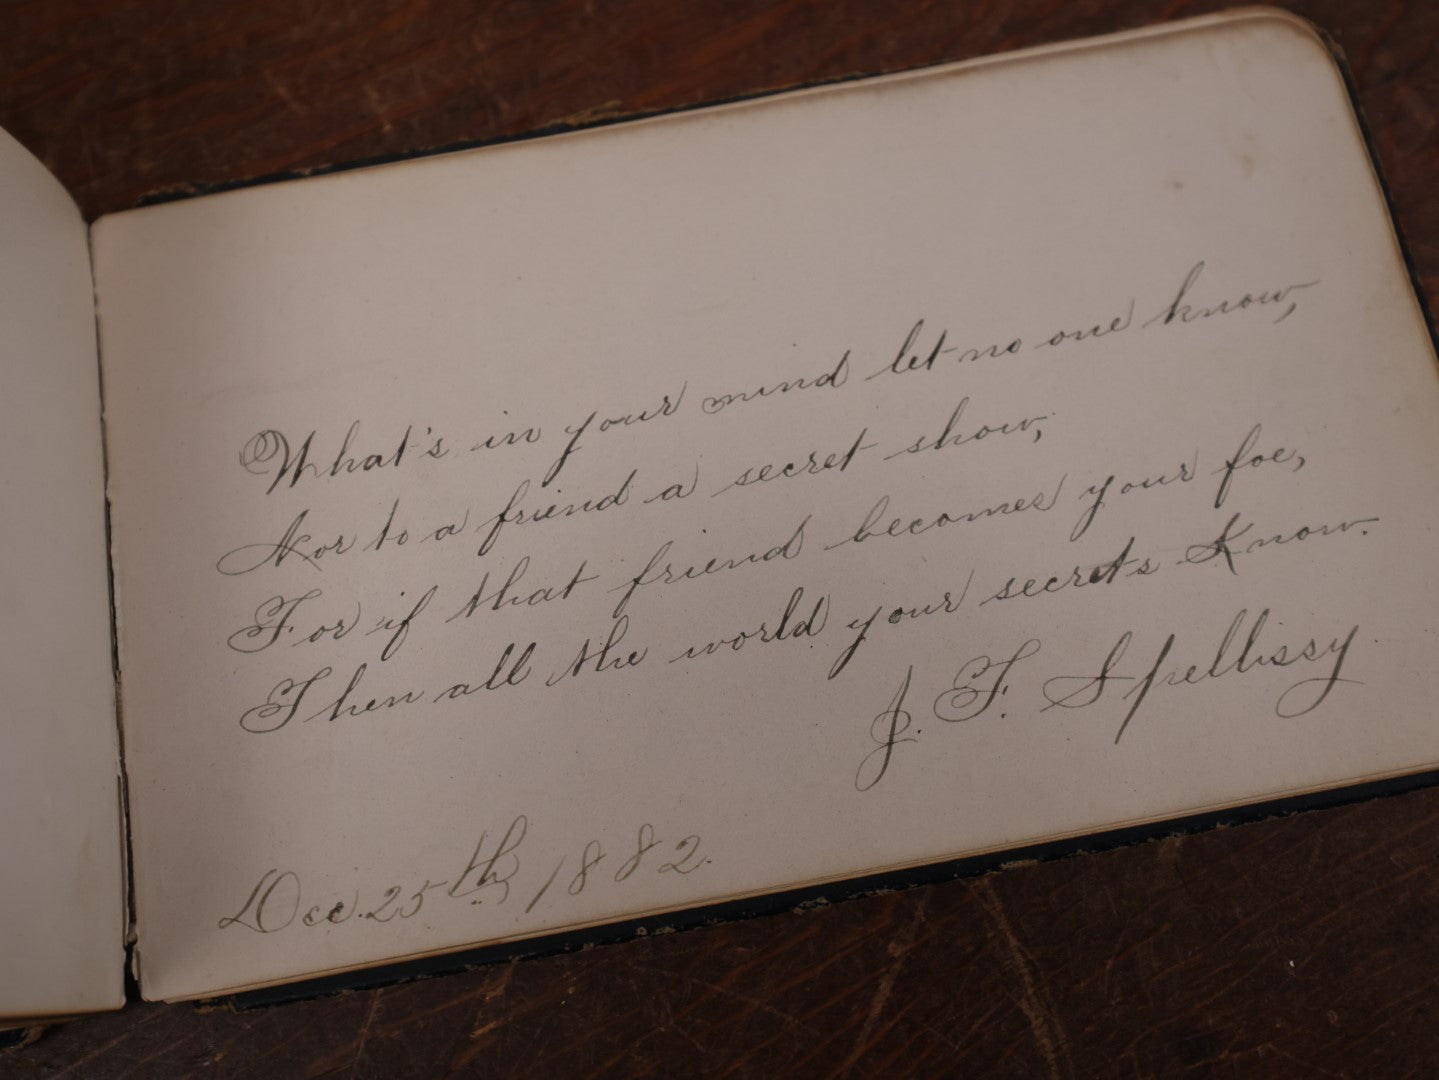 What's in your mind let no one know,
Nor to a friend a secret show,
For if that friend becomes your foe,
Then all the world your secrets Know.
J. F. Spellissy
Dec. 25th 1882.